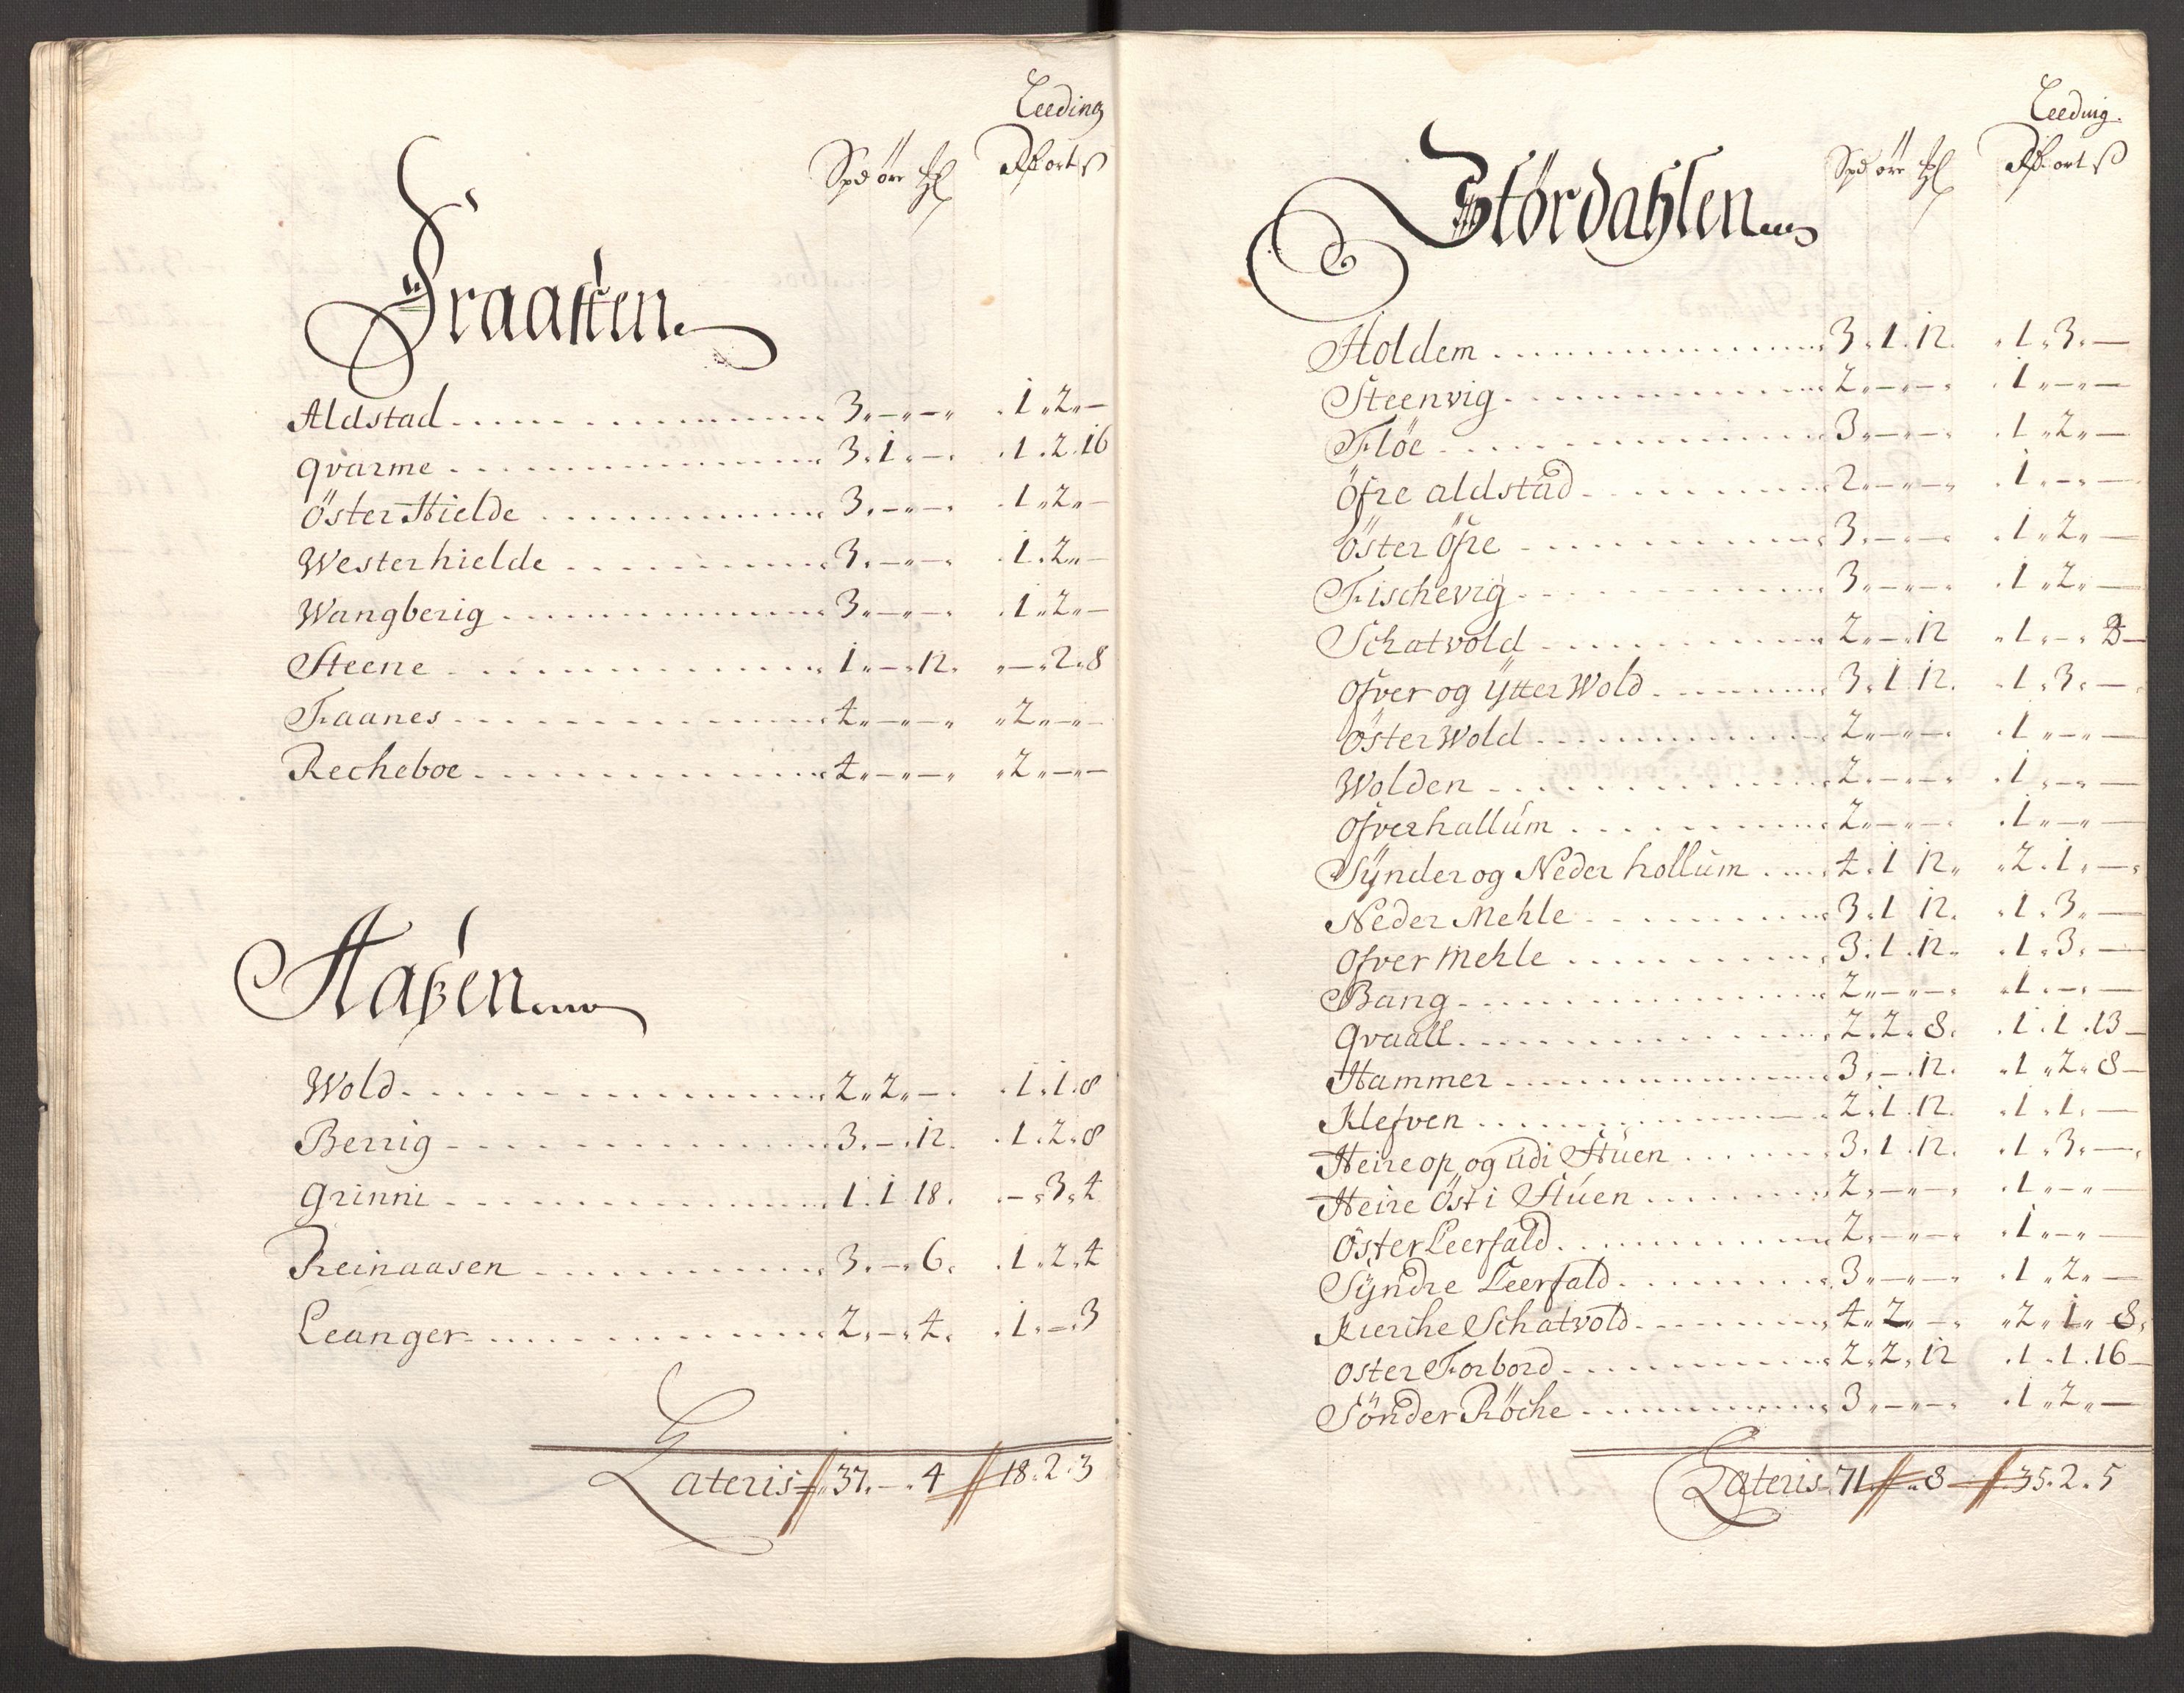 Leeding
Spd ört
Rd ort ß
Fraasten.
Aldstad 3 „ — „ — „ 1 „ 2 „ —
Qvarme 3 . 1 . — . 1 . 2 . 16
Öster Hielde 3 . — „ — . 1 „ 2 „ —
Wester hielde 3 . — „ — . 1 . 2 „ —
Wangberig 3 „ — „ — . 1 „ 2 „ —
Steene 1 „ — . 12 . „ — „ 2 „ 8
Faanes 4 „ — „ — „ „ 2 „ — „ —
Recheboe 4 „ — „ — „ „ 2 „ — „ —
Haßen
Wold 2 „ 2 „ — . 1 . 1 . 8
Berrig 3 . — . 12 . 1 . 2 . 8
Grinni 1 . 1 18 . — „ 3 „ 4
Reinaasen 3 . — . 6 . 1 . 2 . 4
Leanger 2 . — . 4 . 1 . — . 3
Lateris 37 . — . 4 18 . 2 . 3
Leeding.
Spd ört
Rd ort ß
Stördahlen
Holdem 3 . 1 . 12 . 1 . 3 . —
Steenvig 2 „ — „ — . 1 „ — „ —
Flöe 3 „ — „ — . 1 „ 2 „ —
Öfre aldstad 2 „ — „ — . 1 . — „ —
Öster Öfre 3 . — „ — . 1 „ 2 „ —
Fischevig 3 „ — „ — . 1 „ 2 „ —
Schatvold 2 „ — . 12 „ 1 „ — „ 8 —
Ofver og ÿtter Wold 3 . 1 12 . 1 . 3 . —
Öster Wold 2 „ — „ — . 1 „ — „ —
Wolden 2 „ — „ — . 1 „ — „ —
Ofver hallum 2 „ — „ — . 1 „ — „ —
Sÿnder og Neder hollum 4 . 1 12 „ „ 2 . 1 . —
Neder Mehle 3 . 1 12 . 1 . 3 „ —
Ofver Mehle 3 . 1 . 12 . 1 . 3 . —
Bang 2 „ — „ — . 1 . — . —
Qvaall 2 . 2 . 8 . 1 . 1 . 13 —
Hammer 3 . — . 12 . 1 „ 2 . 8 —
Klefven 2 . 1 . 12 . 1 . 1 . —
Heire op og udi Stuen 3 . 1 . 12 . 1 . 3 . —
Heire Öst i Stuen 2 . — „ — . 1 „ — „ —
Öster Leerfald 2 . — „ — . 1 „ — „ —
Sÿndre Leerfald 3 „ — „ — . 1 „ 2 „ —
Kierche Schatvold 4 „ 2 „ — „ 2 „ 1 „ 8 .
Oster Forbord 2 . 2 . 12 . 1 . 1 . 16 —
Sönder Röche 3 „ — „ — . 1 „ 2 „ —
Lateris 71 „ 8 35 . 2 . 5